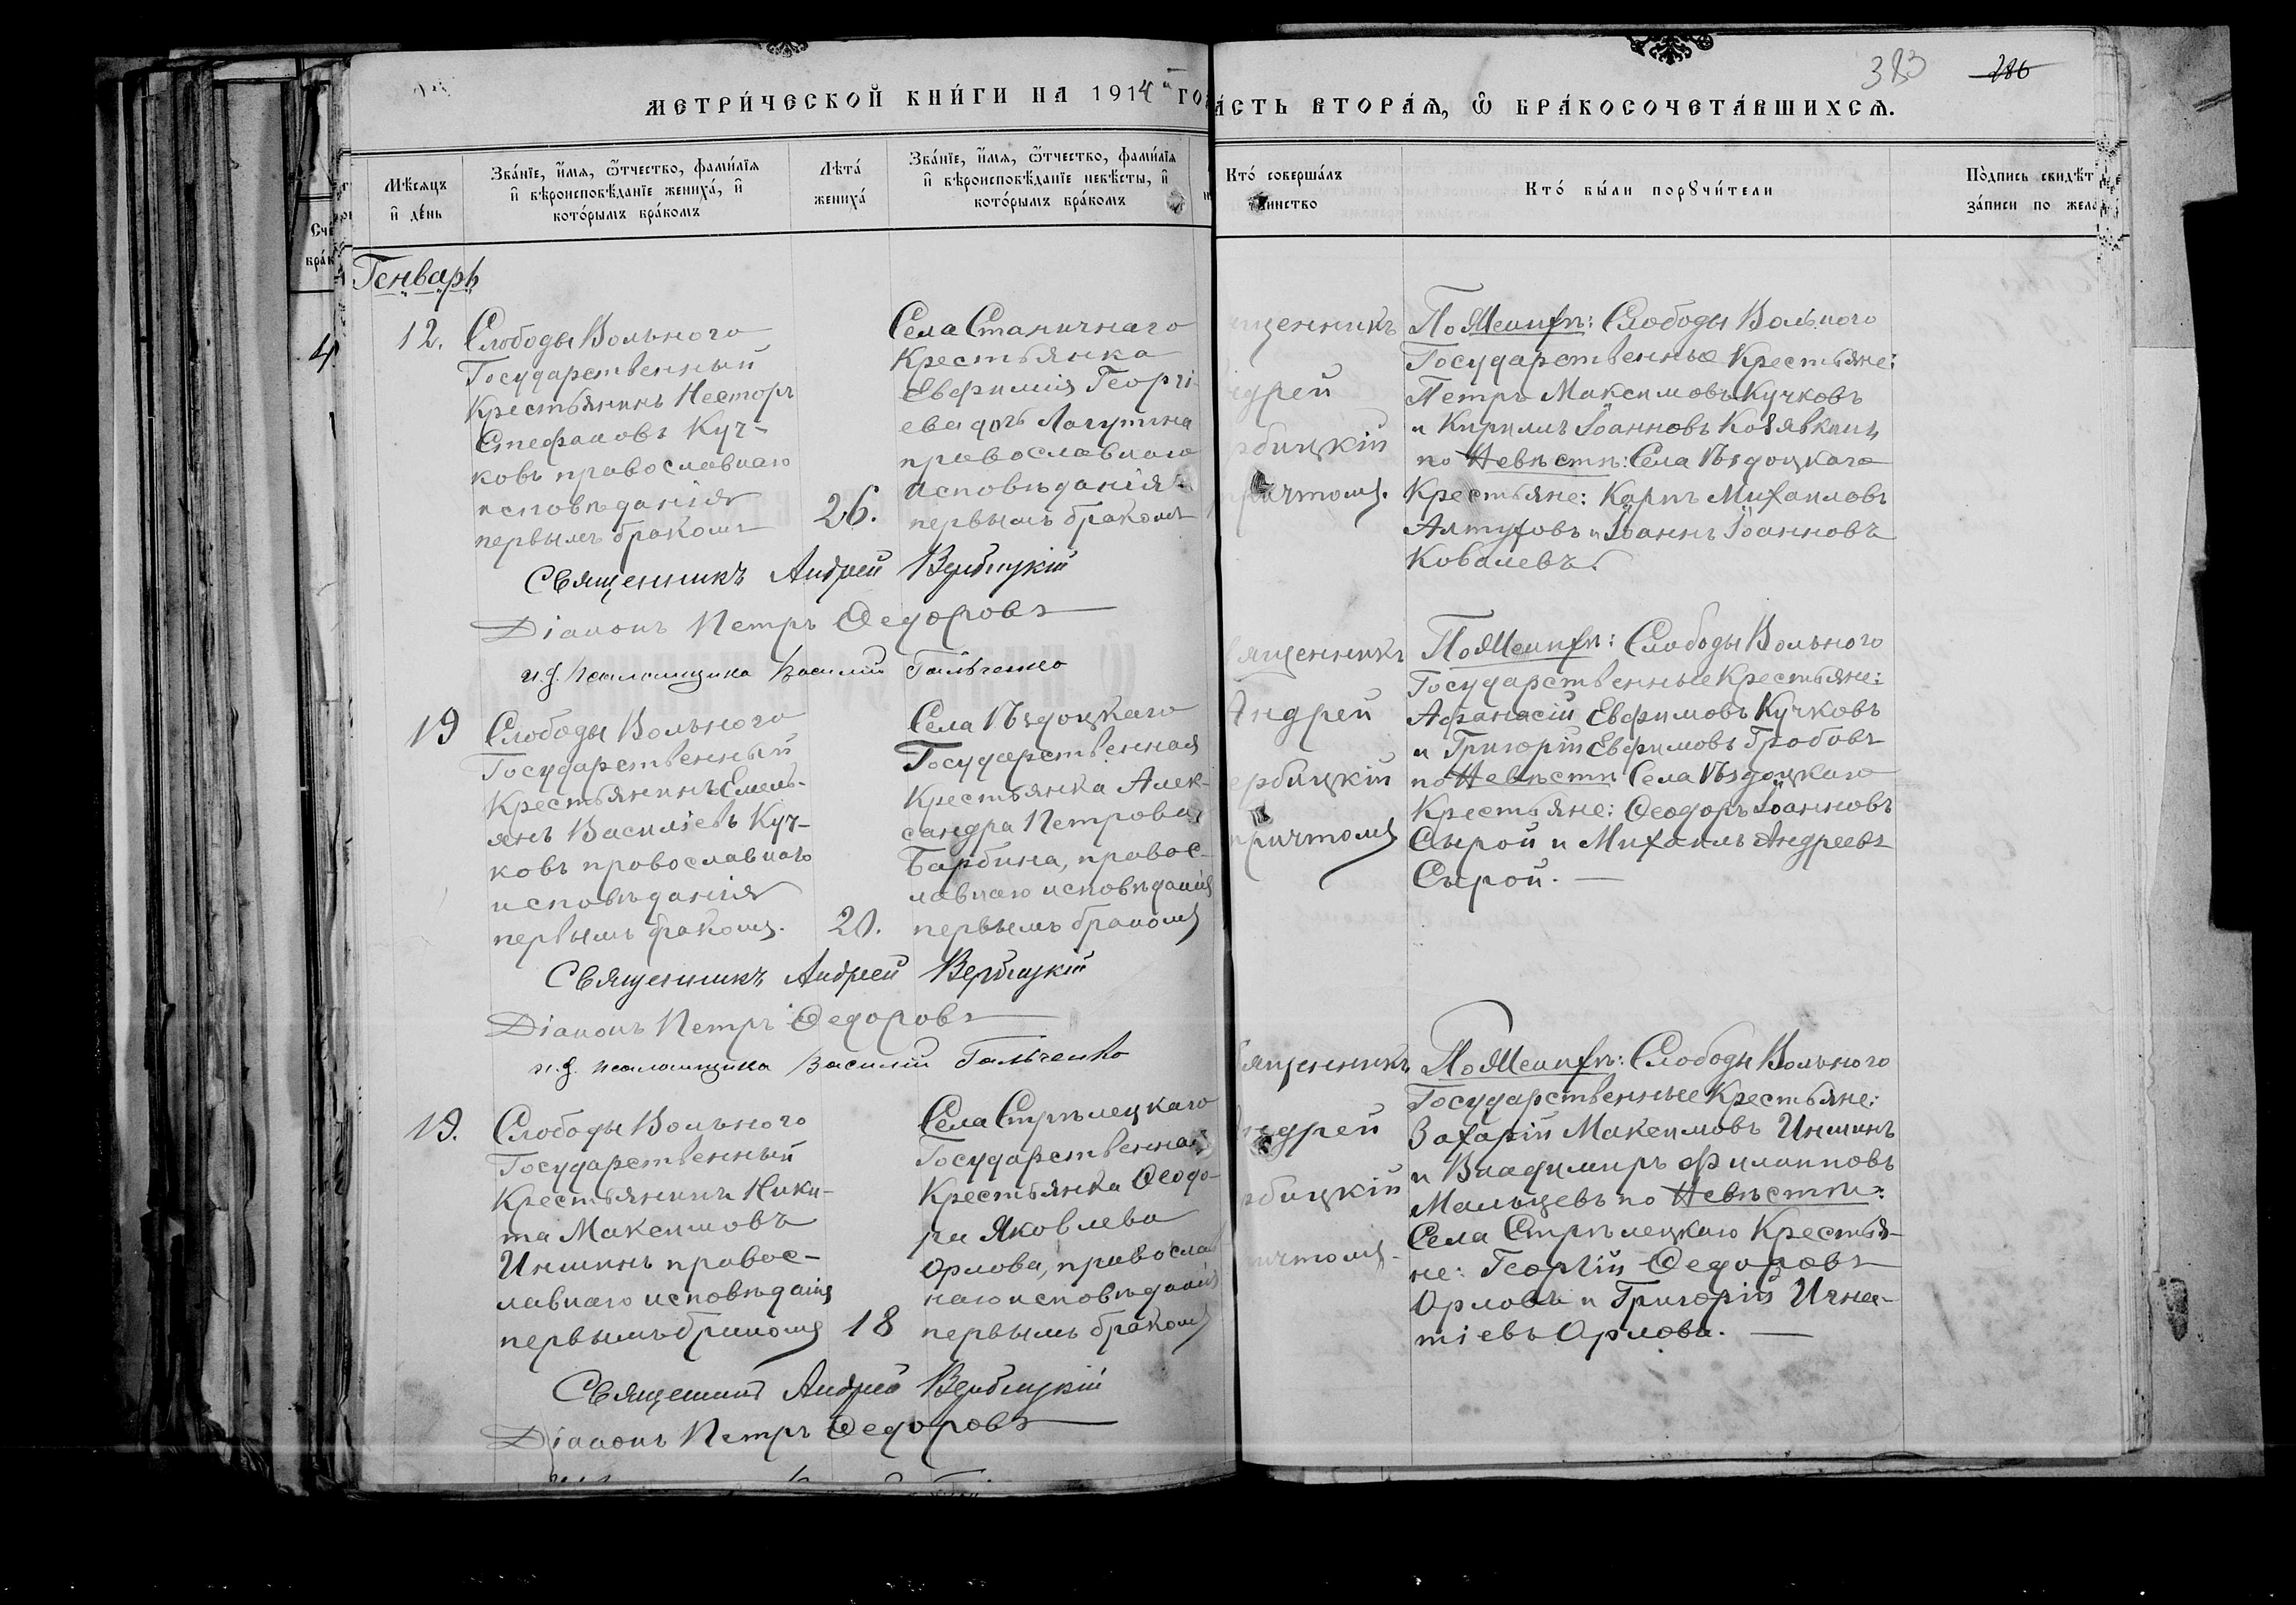 383 286
МЕТРИ́ЧЕСКОЙ КНИ́ГИ НА 1914 ГО
А́СТЬ ВТОРА́Я, Ѡ БРА́КОСОЧЕТА́ВШИХСѦ.
Мѣ́сяцъ
и҆ де́нь
Зва́нїе, и҆́мя, ѻ҆́тчество, фами́лїя
и҆ вѣроисповѣ́данїе жениха́, и҆
кото́рымъ бра́комъ
Лѣта́
жениха́
Зва́нїе, и҆́мя, ѻ҆́тчество, фами́лїя
и҆ вѣроисповѣ́данїе невѣ́сты, и҆
кото́рымъ бра́комъ
Кто́ соверша́лъ
таинство
Кто́ бы́ли порꙋчи́тели
По́дпись свидѣт
за́писи по жела
Сче
бра́к
Генварь
4
12.
Слободы Вольного
Государственный
Крестьянинъ Несторъ
Стефановъ Куч-
ковъ православнаго
исповѣданія
первымъ бракомъ
26.
Села Станичнаго
Крестьянка
Евфимія Георгі-
ева дочь Лагутина
православнаго
исповѣданія
первымъ бракомъ
щенникъ
ндрей
рбицкій
причтомъ.
По Женихѣ: Слободы Вольного
Государственные Крестьяне:
Петръ Максимовъ Кучковъ
и Кирилъ Іоанновъ Козявкинъ
по Невѣстѣ: Села Ѣздоцкаго
Крестьяне: Карпъ Михаиловъ
Алтуховъ и Іоаннъ Іоанновъ
Ковалевъ.
Священникъ Андрей Вербицкій
Діаконъ Петръ Ѳедоровъ
и.д. псаломщика Василий Гальченко
19
Слободы Вольного
Государственный
Крестьянинъ Емель-
янъ Василіевъ Куч-
ковъ православнаго
исповѣданія
первымъ бракомъ.
20.
Села Ѣздоцкаго
Государственная
Крестьянка Алек-
сандра Петрова
Барбина, правос-
лавнаго исповѣданія
первымъ бракомъ
вященникъ
Андрей
ербицкій
причтомъ
По Женихѣ: Слободы Вольного
Государственные Крестьяне:
Афанасій Евфимовъ Кучковъ
и Григорій Евфимовъ Гробовъ
по Невѣстѣ Села Ѣздоцкаго
Крестьяне: Ѳеодоръ Іоанновъ
Сырой и Михаилъ Андреевъ
Сырой.
Священникъ Андрей Вербицкій
Діаконъ Петръ Ѳедоровъ
и.д. псаломщика Василій Гальченко
19.
Слободы Вольного
Государственный
Крестьянинъ Ники-
та Максимовъ
Иншинъ правос-
лавнаго исповѣданія
первымъ бракомъ
18
Села Стрѣлецкаго
Государственная
Крестьянка Ѳеодо-
ра Яковлева
Орлова, православ
наго исповѣданія
первымъ бракомъ
вященникъ
ндрей
рбицкій
ичтомъ
По Женихѣ: Слободы Вольного
Государственные Крестьяне:
Захарій Максимовъ Иншинъ
и Владимиръ Филипповъ
Мальцевъ по Невѣстѣ:
Села Стрѣлецкаго Крестья-
не: Георгій Ѳедоровъ
Орловъ и Григорій Игна-
тіевъ Орловъ.
Священникъ Андрей Вербицкій
Діаконъ Петръ Ѳедоровъ